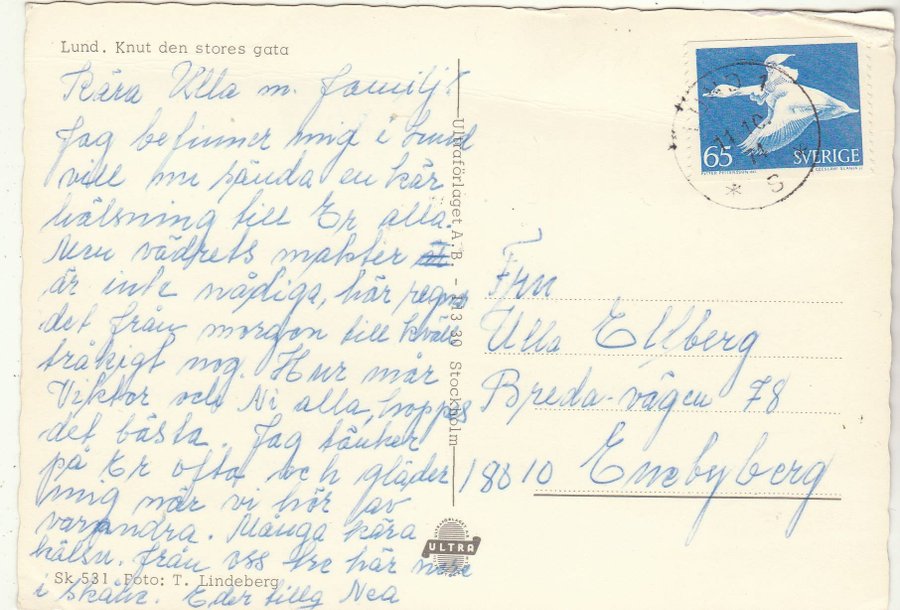 Lund. Knut den stores gata
Kära Ulla m. familj!
Jag befinner mig i Lund
vill nu sända en kär
hälsning till Er alla.
Men vädrets makter
är inte nådiga, här regnar
det från morgon till kväll
tråkigt nog. Hur mår
Viktor och Ni alla, hoppas
det bästa. Jag tänker
på Er ofta och gläder
mig när vi hör av
varandra. Många kära
hälsn. från oss tre här nere
i Skåne. Eder tillg Nea
Sk 531 Foto: T. Lindeberg
Ultraförlaget A.B. - 113 30 Stockholm
ULTRA
LUND 1
11.10.
S
65 SVERIGE
Fru
Ulla Ellberg
Breda-vägen 78
18010 Enebyberg